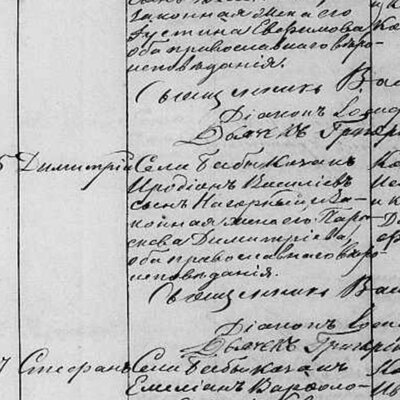 законная жена его
Іустина Евфимова
оба православнаго вѣро-
исповѣданія.
Священникъ Ва
Діаконъ
Дьячекъ Григорій
Димитрій Села Бабы Козакъ
Иродіонъ Василіевъ
сынъ Нагорный и за-
конная жена его Пара-
скева Димитріева,
оба православнаго вѣро-
исповѣданія.
Священникъ Ва
Діаконъ
Дьячекъ Григорій
7 Стефанъ Села Бабы Козакъ
Емеліанъ Варѳоло-